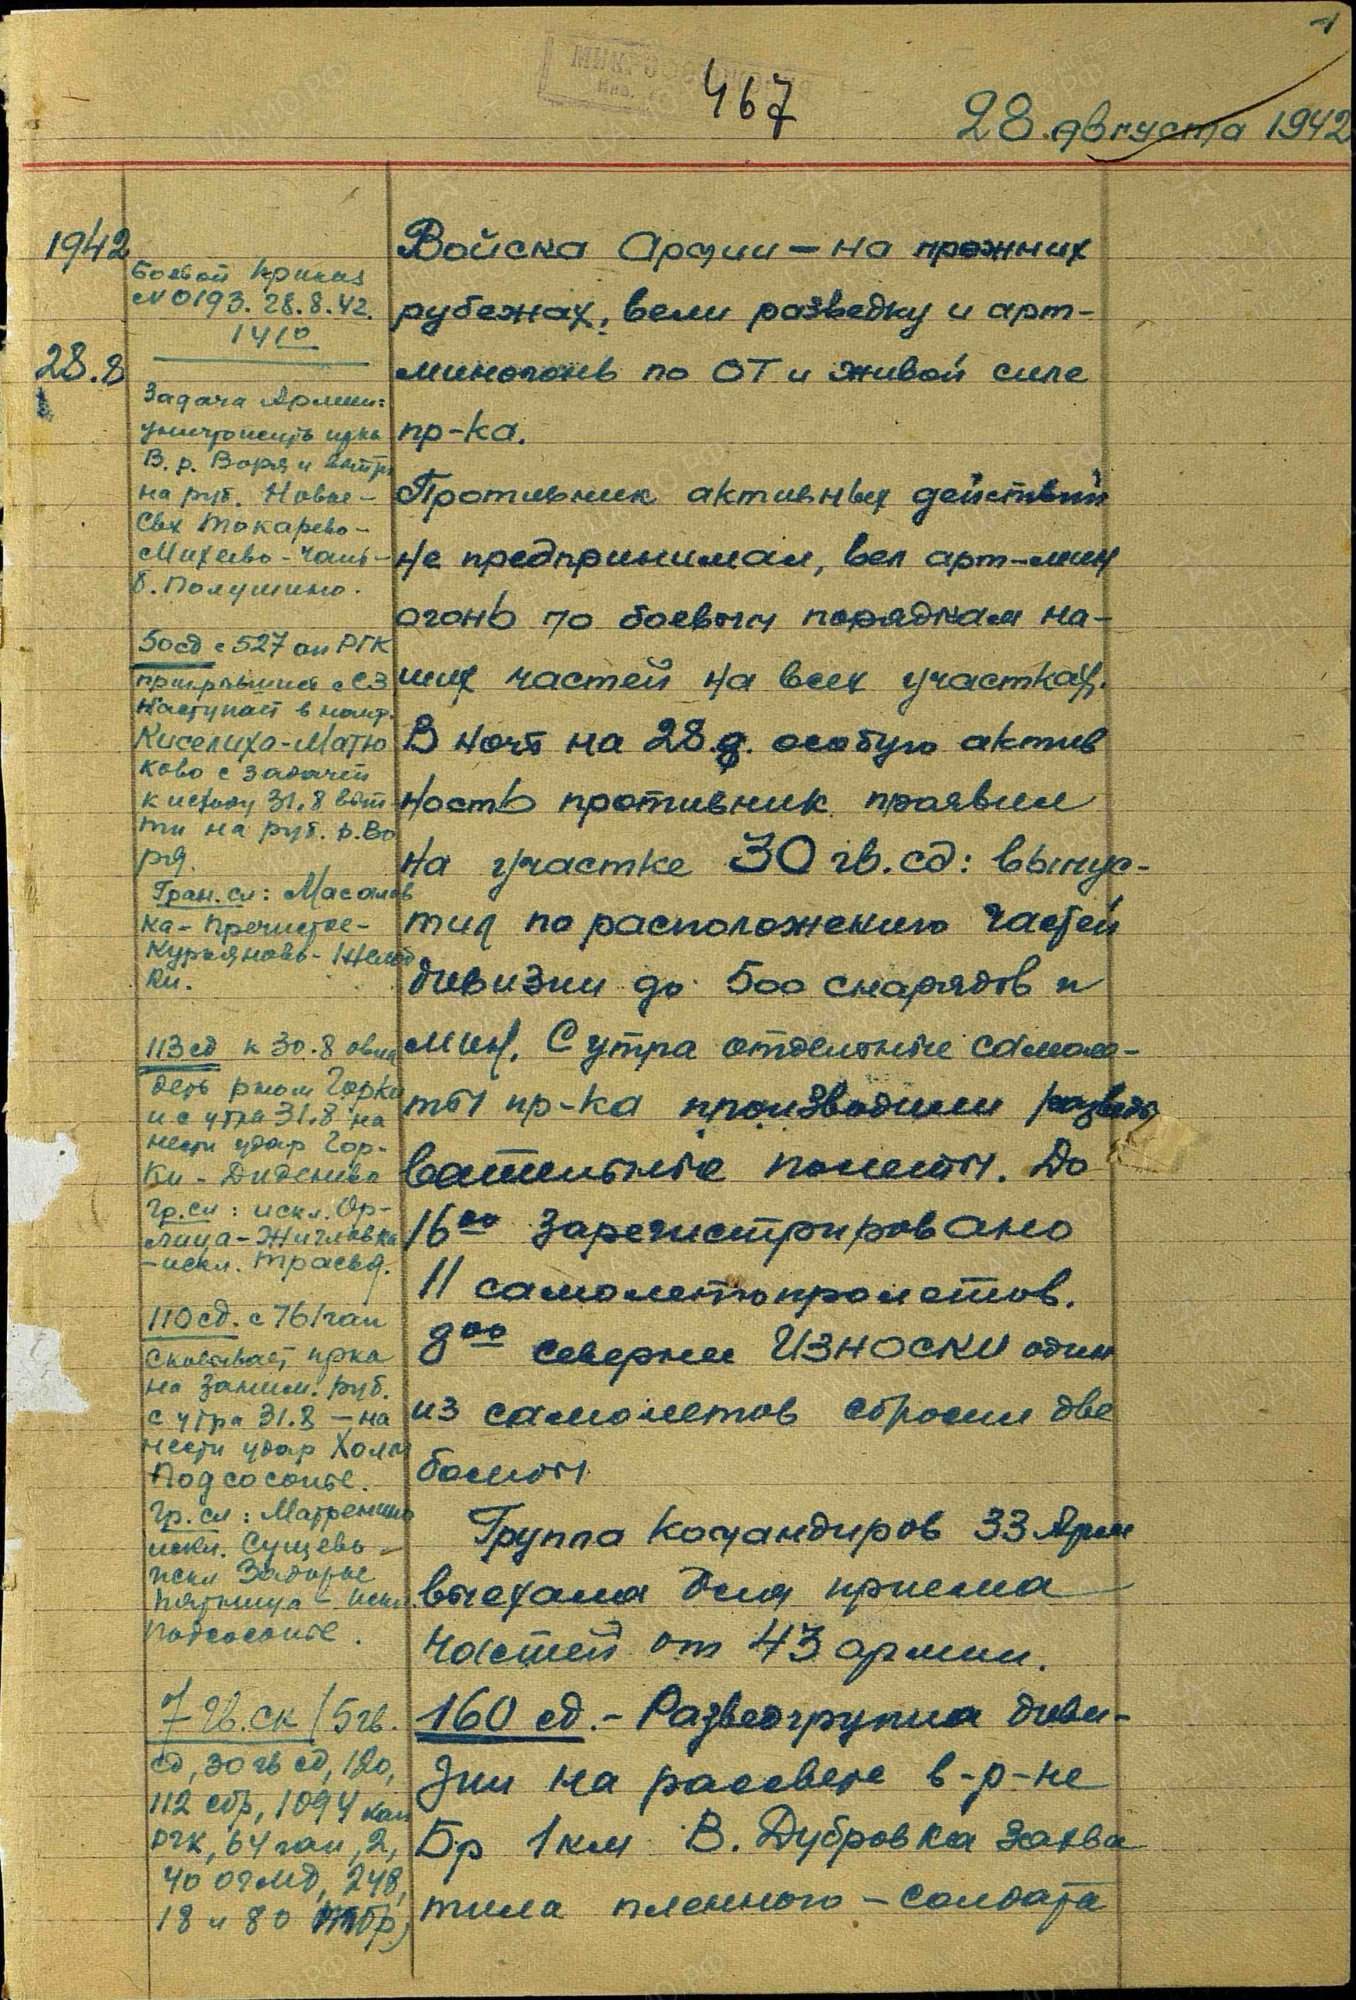 467
28 августа 1942
1942
28.8
Боевой приказ
№ 0193. 28.8.42.
14 10
Задача Армии:
уничтожить пр-ка
В. р. Воря и выйти
на руб. Новое-
Свх Токарево-
Михеево-
Б. Полушино.
50 сд с 527 ап РГК
прикрывшись с СЗ
наступает в напр.
Киселиха-Матю
ково с задачей
к исходу 31.8 вый-
ти на руб. р. Во
ря.
Гран. сл: Масалов
ка- Пречистое-
Курьяново-
ки.
113 сд к 30.8 овла
деть рном Горки
и с утра 31.8 на
нести удар Гор-
ки - Диденево
гр. сл: искл. Ор-
лица-Жигловка
-искл.
110 сд. с 761 гап
сковывает прка
на заним. руб.
с утра 31.8 - на
нести удар Холм
Подсосонье.
гр. сл: Матренино
искл. Сущево-
искл Задорье
Пятница - искл
Подсосонье.
7 Гв. ск (5 гв.
сд, 30 гв сд, 120,
112 сбр, 1094 кап
РГК, 64 гап, 2,
40 огмд, 248,
18 и 80 тбр)
Войска Армии - на прежних
рубежах, вели разведку и арт-
миногонь по ОТ и живой силе
пр-ка.
Противник активных действий
не предпринимал, вел арт-мин
огонь по боевым порядкам на-
ших частей на всех участках.
В ночь на 28.8. особую актив
ность противник проявил
на участке 30 гв. сд: выпус-
тил по расположению частей
дивизии до 500 снарядов и
мин. С утра отдельные самоле-
ты пр-ка производили разведы
вательные полеты. До
16 00 зарегистрировано
11 самолетопролетов.
8 00 севернее ИЗНОСКИ один
из самолетов сбросил две
бомбы
Группа командиров 33 Арм
выехала для приема
частей от 43 армии.
160 сд. - Разведгруппа диви-
зии на рассвете в р-не
Бр 1 км В. Дубровка захва
тила пленного - солдата